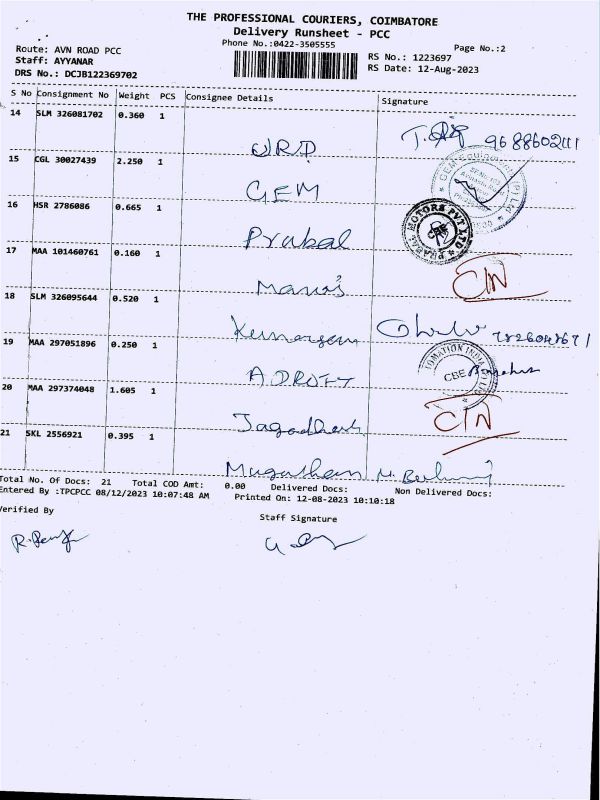 THE PROFESSIONAL COURIERS, COIMBATORE
Delivery Runsheet - PCC
Phone No.:0422-3505555
Page No.:2
Route: AVN ROAD PCC
Staff: AYYANAR
DRS No.: DCJB122369702
RS No.: 1223697
RS Date: 12-Aug-2023
S No Consignment No Weight PCS Consignee Details Signature
14 SLM 326081702 0.360 1
URP T. 9688602111
15 CGL 30027439 2.250 1
GEM
16 HSR 2786086 0.665 1
Prabal PRABAL MOTORS PVT LTD
17 MAA 101460761 0.160 1
Manoj C/N
18 SLM 326095644 0.520 1
19 MAA 297051896 0.250 1
ADROIT CBE
20 MAA 297374048 1.605 1
Jagadhesh C/N
21 SKL 2556921 0.395 1
Total No. Of Docs: 21 Total COD Amt: 0.00 Delivered Docs: Non Delivered Docs:
Entered By :TPCPCC 08/12/2023 10:07:48 AM Printed On: 12-08-2023 10:10:18
Verified By
Staff Signature